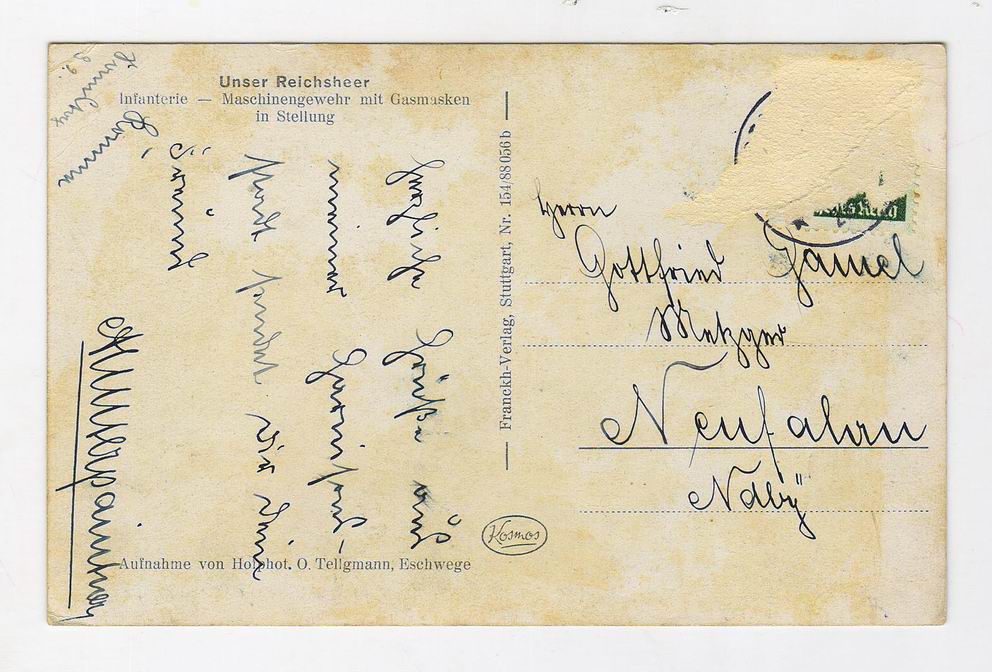 Unser Reichsheer
Infanterie — Maschinengewehr mit Gasmasken
in Stellung
Herzliche Grüße aus
meiner Garnisons-
Stadt sendet Dir Dein
Freund
Franckh-Verlag, Stuttgart, Nr. 154/88056b
Kosmos
Aufnahme von Hofphot. O. Tellgmann, Eschwege
Herrn
Gottfried
Metzger
Neufahrn
Ndby